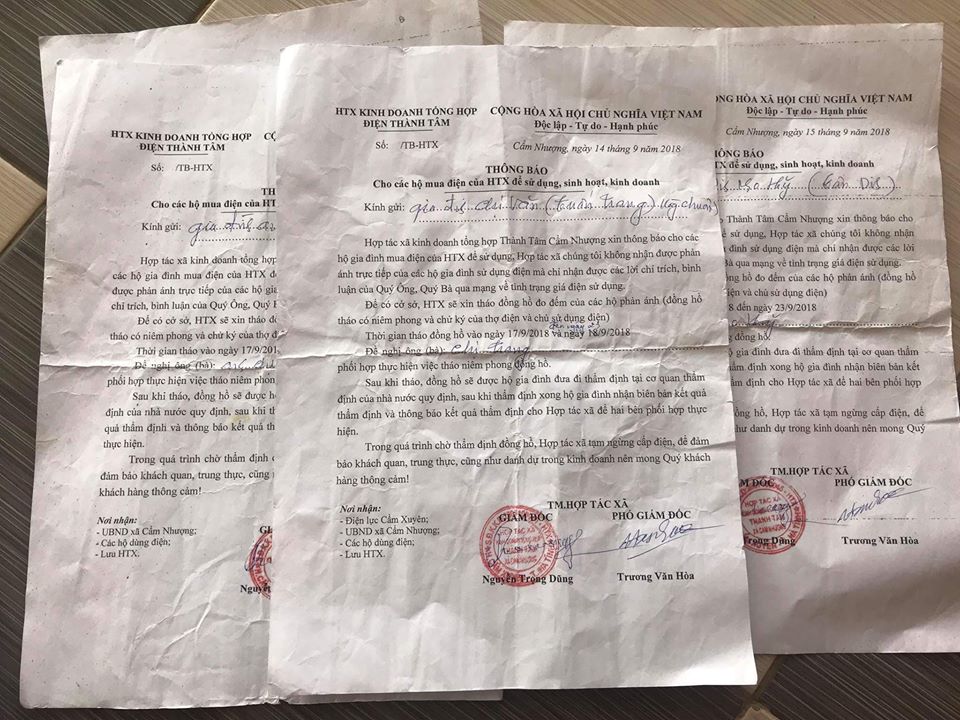 HTX KINH DOANH TỔNG HỢP
ĐIỆN THÀNH TÂM
Số: /TB-HTX
Kính gửi: gia đình
Hợp tác xã kinh doanh tổng hợp
các hộ gia đình mua điện của HTX để
được phản ánh trực tiếp của các hộ gia
chỉ trích, bình luận của Quý Ông, Quý B
Để có cơ sở, HTX sẽ xin tháo đồng
tháo có niêm phong và chữ ký của thợ điện
Thời gian tháo vào ngày 17/9/201
Đề nghị ông (bà):
phối hợp thực hiện việc tháo niêm phong
Sau khi tháo, đồng hồ sẽ được hộ
định của nhà nước quy định, sau khi th
quả thẩm định và thông báo kết quả th
thực hiện.
Trong quá trình chờ thẩm định
đảm bảo khách quan, trung thực, cũng
khách hàng thông cảm!
Nơi nhận:
- UBND xã Cẩm Nhượng;
- Các hộ dùng điện;
- Lưu HTX.
HTX KINH DOANH TỔNG HỢP
ĐIỆN THÀNH TÂM
Số: /TB-HTX
CỘNG HÒA XÃ HỘI CHỦ NGHĨA VIỆT NAM
Độc lập - Tự do - Hạnh phúc
Cẩm Nhượng, ngày 14 tháng 9 năm 2018
THÔNG BÁO
Cho các hộ mua điện của HTX để sử dụng, sinh hoạt, kinh doanh
Kính gửi: gia đình chị Vân (tuấn trang)
Hợp tác xã kinh doanh tổng hợp Thành Tâm Cẩm Nhượng xin thông báo cho các
hộ gia đình mua điện của HTX để sử dụng, Hợp tác xã chúng tôi không nhận được phản
ánh trực tiếp của các hộ gia đình sử dụng điện mà chỉ nhận được các lời chỉ trích, bình
luận của Quý Ông, Quý Bà qua mạng về tình trạng giá điện sử dụng.
Để có cơ sở, HTX sẽ xin tháo đồng hồ đo đếm của các hộ phản ánh (đồng hồ
tháo có niêm phong và chữ ký của thợ điện và chủ sử dụng điện)
Thời gian tháo đồng hồ vào ngày 17/9/2018 và ngày 18/9/2018
Đề nghị ông (bà): chị trang
phối hợp thực hiện việc tháo niêm phong đồng hồ.
Sau khi tháo, đồng hồ sẽ được hộ gia đình đưa đi thẩm định tại cơ quan thẩm
định của nhà nước quy định, sau khi thẩm định xong hộ gia đình nhận biên bản kết quả
thẩm định và thông báo kết quả thẩm định cho Hợp tác xã để hai bên phối hợp thực
hiện.
Trong quá trình chờ thẩm định đồng hồ, Hợp tác xã tạm ngừng cấp điện, để đảm
bảo khách quan, trung thực, cũng như danh dự trong kinh doanh nên mong Quý khách
hàng thông cảm!
Nơi nhận:
- Điện lực Cẩm Xuyên;
- UBND xã Cẩm Nhượng;
- Các hộ dùng điện;
- Lưu HTX.
TM.HỢP TÁC XÃ
GIÁM ĐỐC PHÓ GIÁM ĐỐC
Nguyễn Trọng Dũng Trương Văn Hòa
NG HÒA XÃ HỘI CHỦ NGHĨA VIỆT NAM
Độc lập - Tự do - Hạnh phúc
Cẩm Nhượng, ngày 15 tháng 9 năm 2018
THÔNG BÁO
TX để sử dụng, sinh hoạt, kinh doanh
Thành Tâm Cẩm Nhượng xin thông báo cho
ể sử dụng, Hợp tác xã chúng tôi không nhận
đình sử dụng điện mà chỉ nhận được các lời
Bà qua mạng về tình trạng giá điện sử dụng.
đồng hồ đo đếm của các hộ phản ánh (đồng hồ
điện và chủ sử dụng điện)
8 đến ngày 23/9/2018
đồng hồ.
gia đình đưa đi thẩm định tại cơ quan thẩm
định xong hộ gia đình nhận biên bản kết
thẩm định cho Hợp tác xã để hai bên phối hợp
đồng hồ, Hợp tác xã tạm ngừng cấp điện, để
như danh dự trong kinh doanh nên mong Quý
TM.HỢP TÁC XÃ
PHÓ GIÁM ĐỐC
Trọng Dũng Trương Văn Hòa